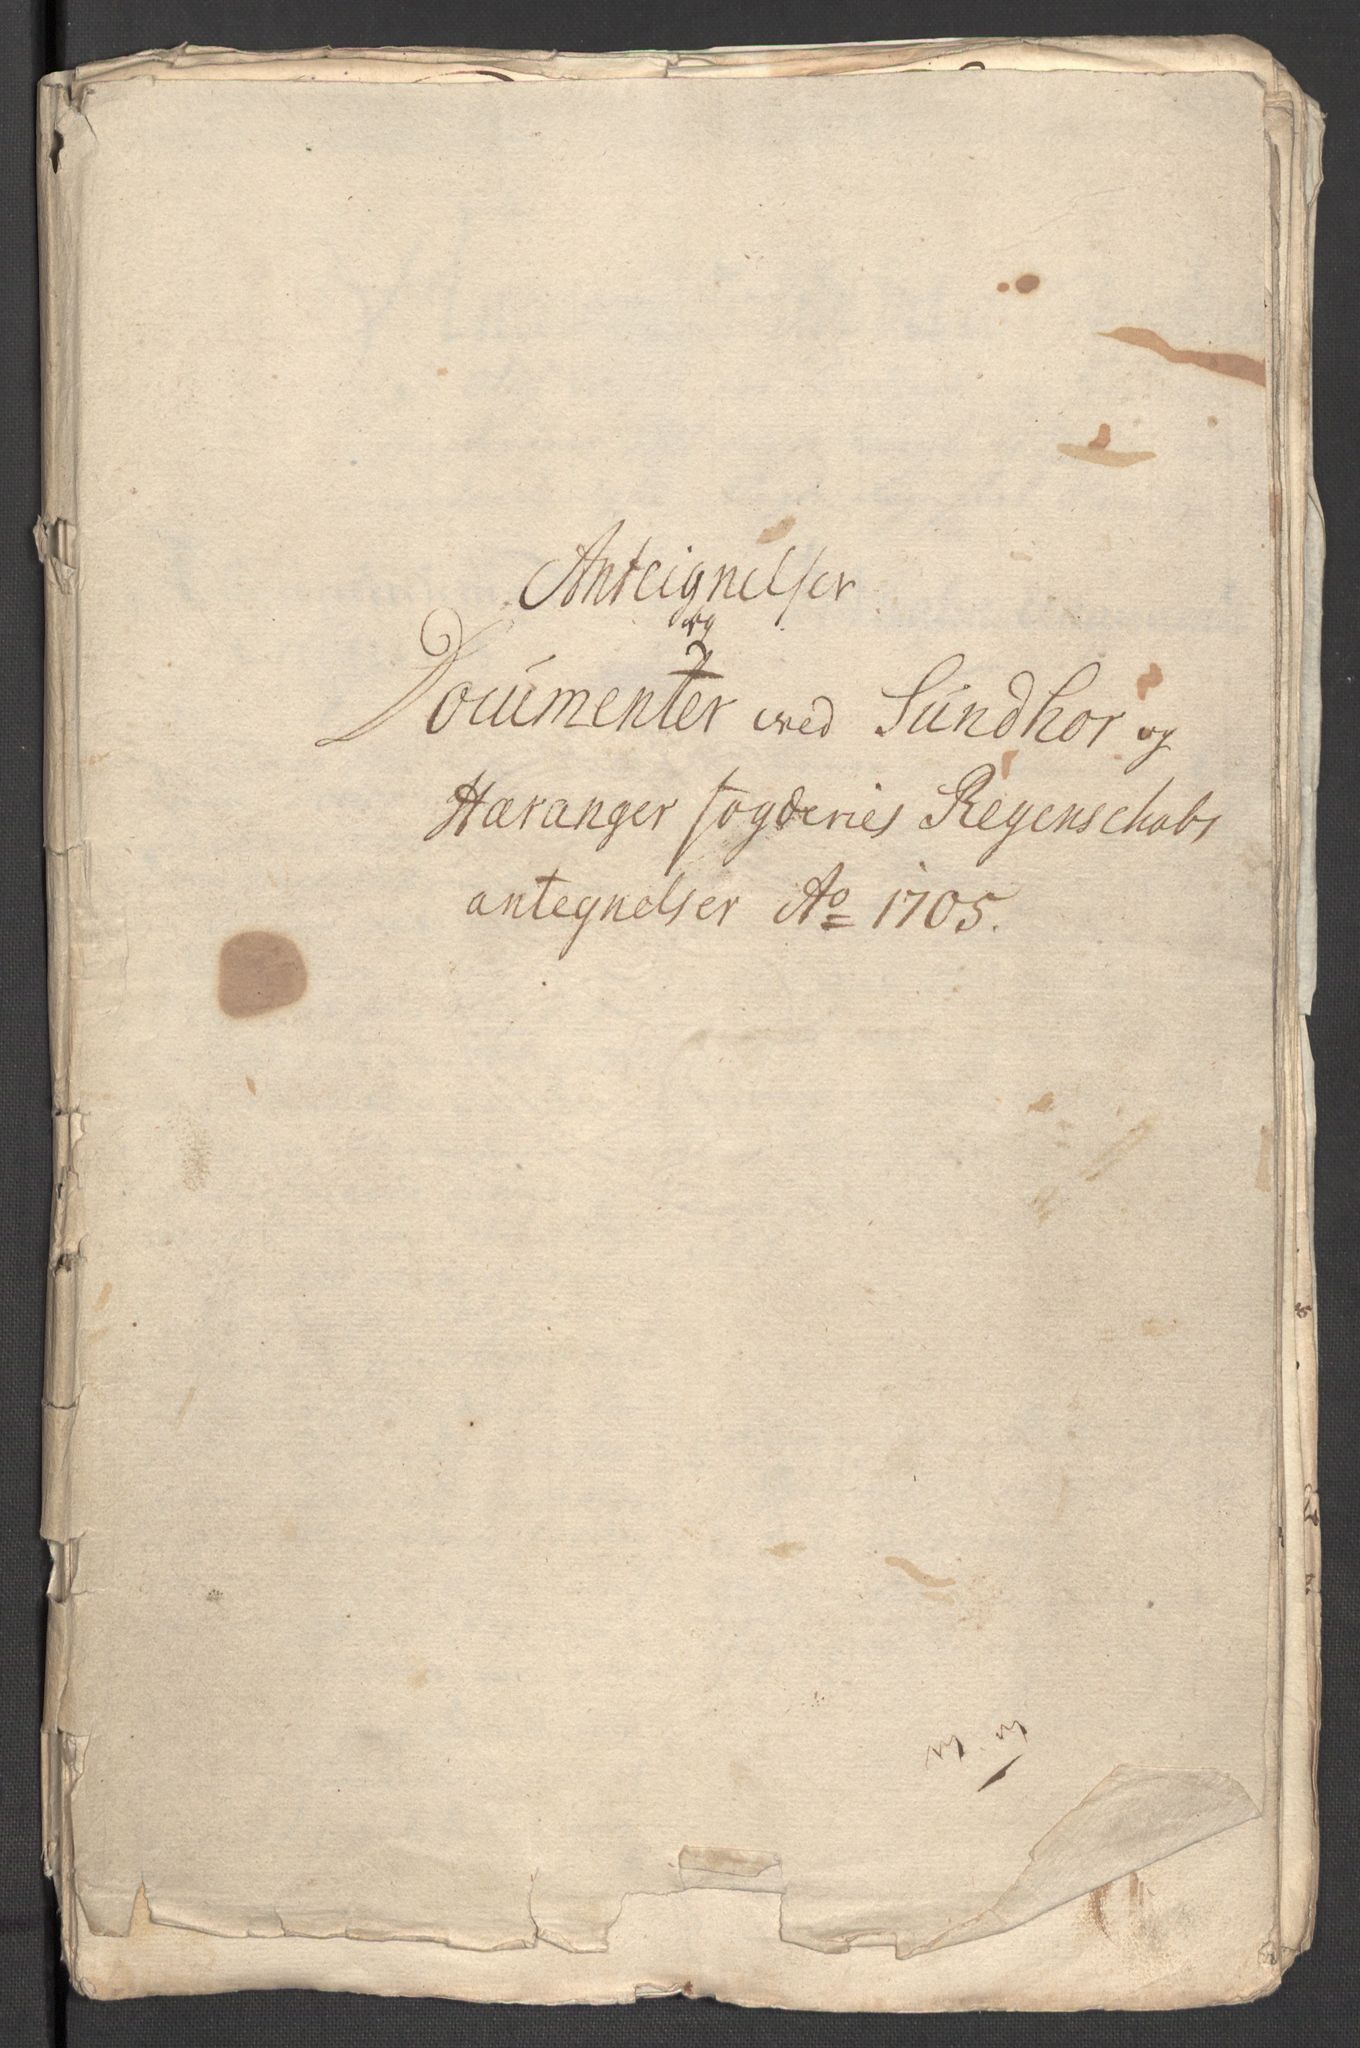 Anteignelser
og
Documenter wed Sundhor og
Haranger fogderies Regenschabs
antegnelser Ao 1705.